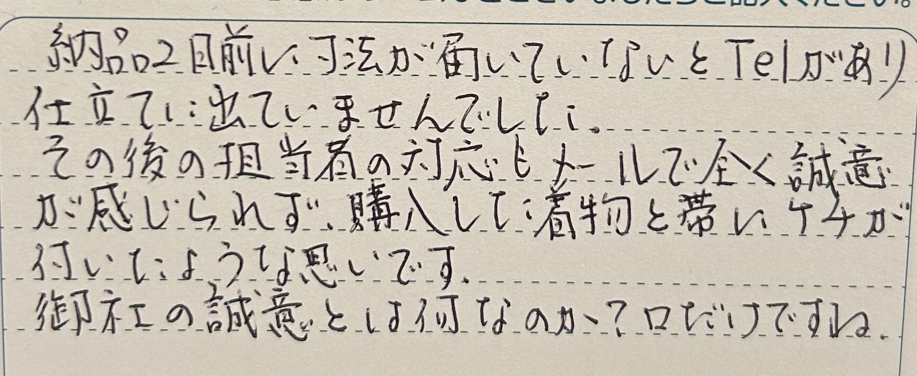 納品2日前に寸法が届いていないとTelがあり
仕立てに出ていませんでした。
その後の担当者の対応もメールで全く誠意
が感じられず、購入した着物と帯にケチが
付いたような思いです。
御社の誠意とは何なのか?口だけですね。